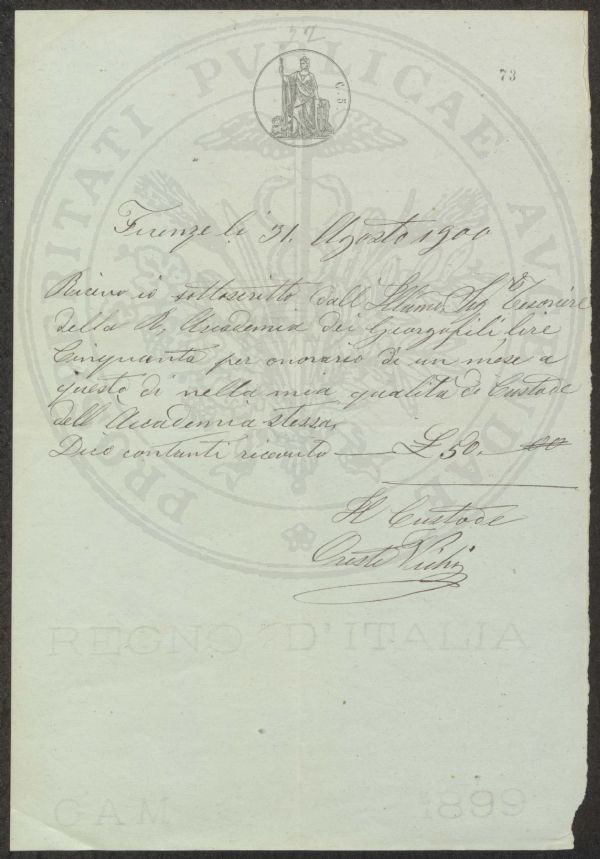 57
73
C. 5.
PROSPERITATI PVBLICAE AVGENDAE
Firenze li 31. Agosto 1900
Ricevo io sottoscritto dall' Illumo. Sig.re Tesoriere
della R. Accademia dei Georgofili lire
Cinquanta per onorario di un mese a
questo di nella mia qualita di Custode
dell' Accademia stessa,
Dico contanti ricevuto — £ 50. 00
Il Custode
Oreste
REGNO D'ITALIA
GAM 1899